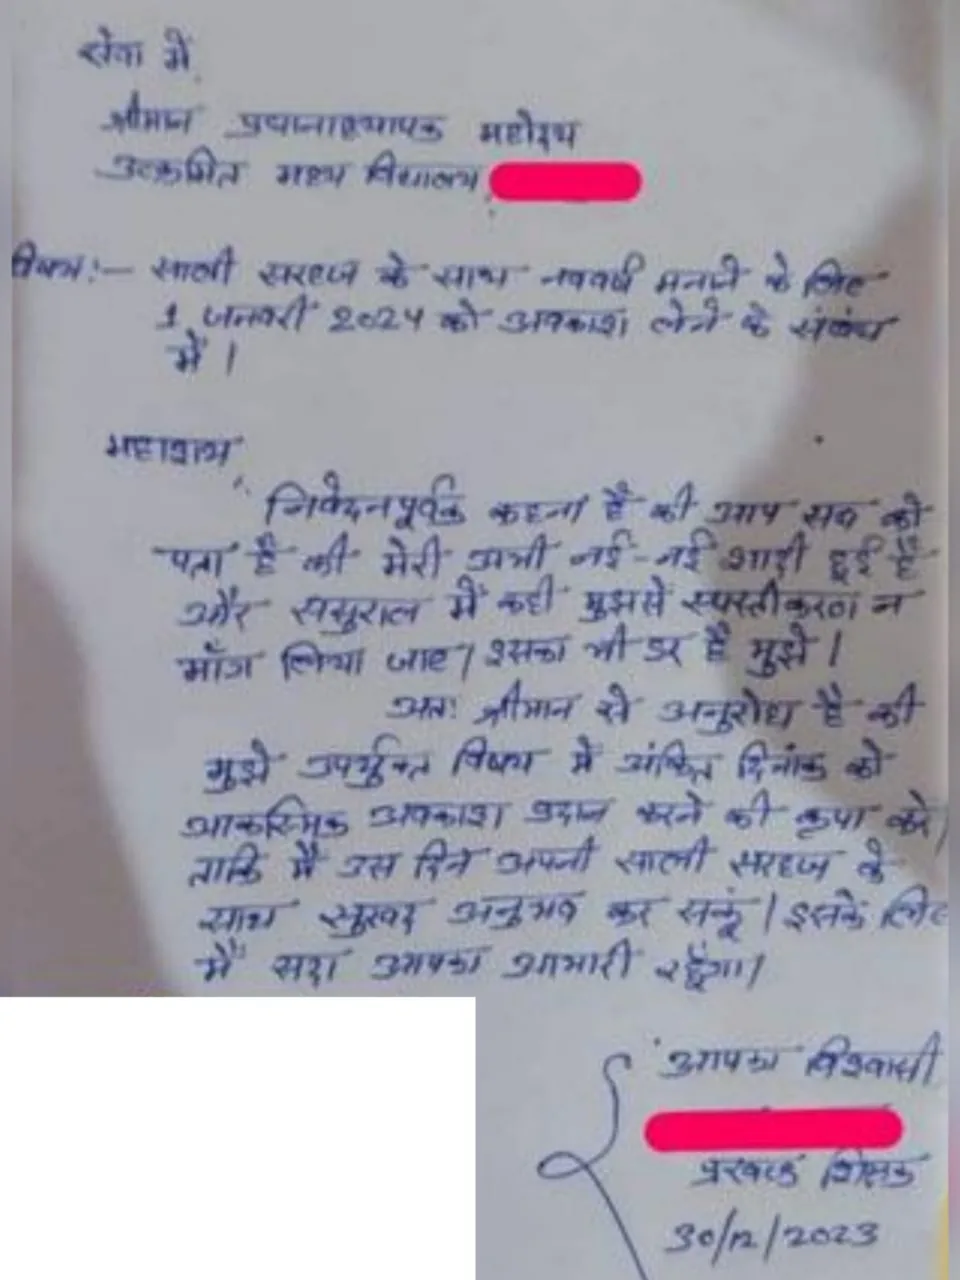 सेवा में,
श्रीमान प्रधानाध्यापक महोदय
उत्क्रमित मध्य विद्यालय,
विषय:- साली सरहज के साथ नववर्ष मनाने के लिए
1 जनवरी 2024 को अवकाश लेने के संबंध
में।
महाशय,
निवेदनपूर्वक कहना है की आप सब को
पता है की मेरी अभी नई-नई शादी हुई है
और ससुराल में कहीं मुझसे स्पस्तीकरण न
माँग लिया जाए। इसका भी डर है मुझे।
अतः श्रीमान से अनुरोध है की
मुझे उपर्युक्त विषय में अंकित दिनांक को
आकस्मिक अवकाश प्रदान करने की कृपा करें।
ताकि मैं उस दिन अपनी साली सरहज के
साथ सुखद अनुभव कर सकूं। इसके लिए
मैं सदा आपका आभारी रहूँगा।
आपका विश्वासी
प्रखण्ड शिक्षक
30/12/2023